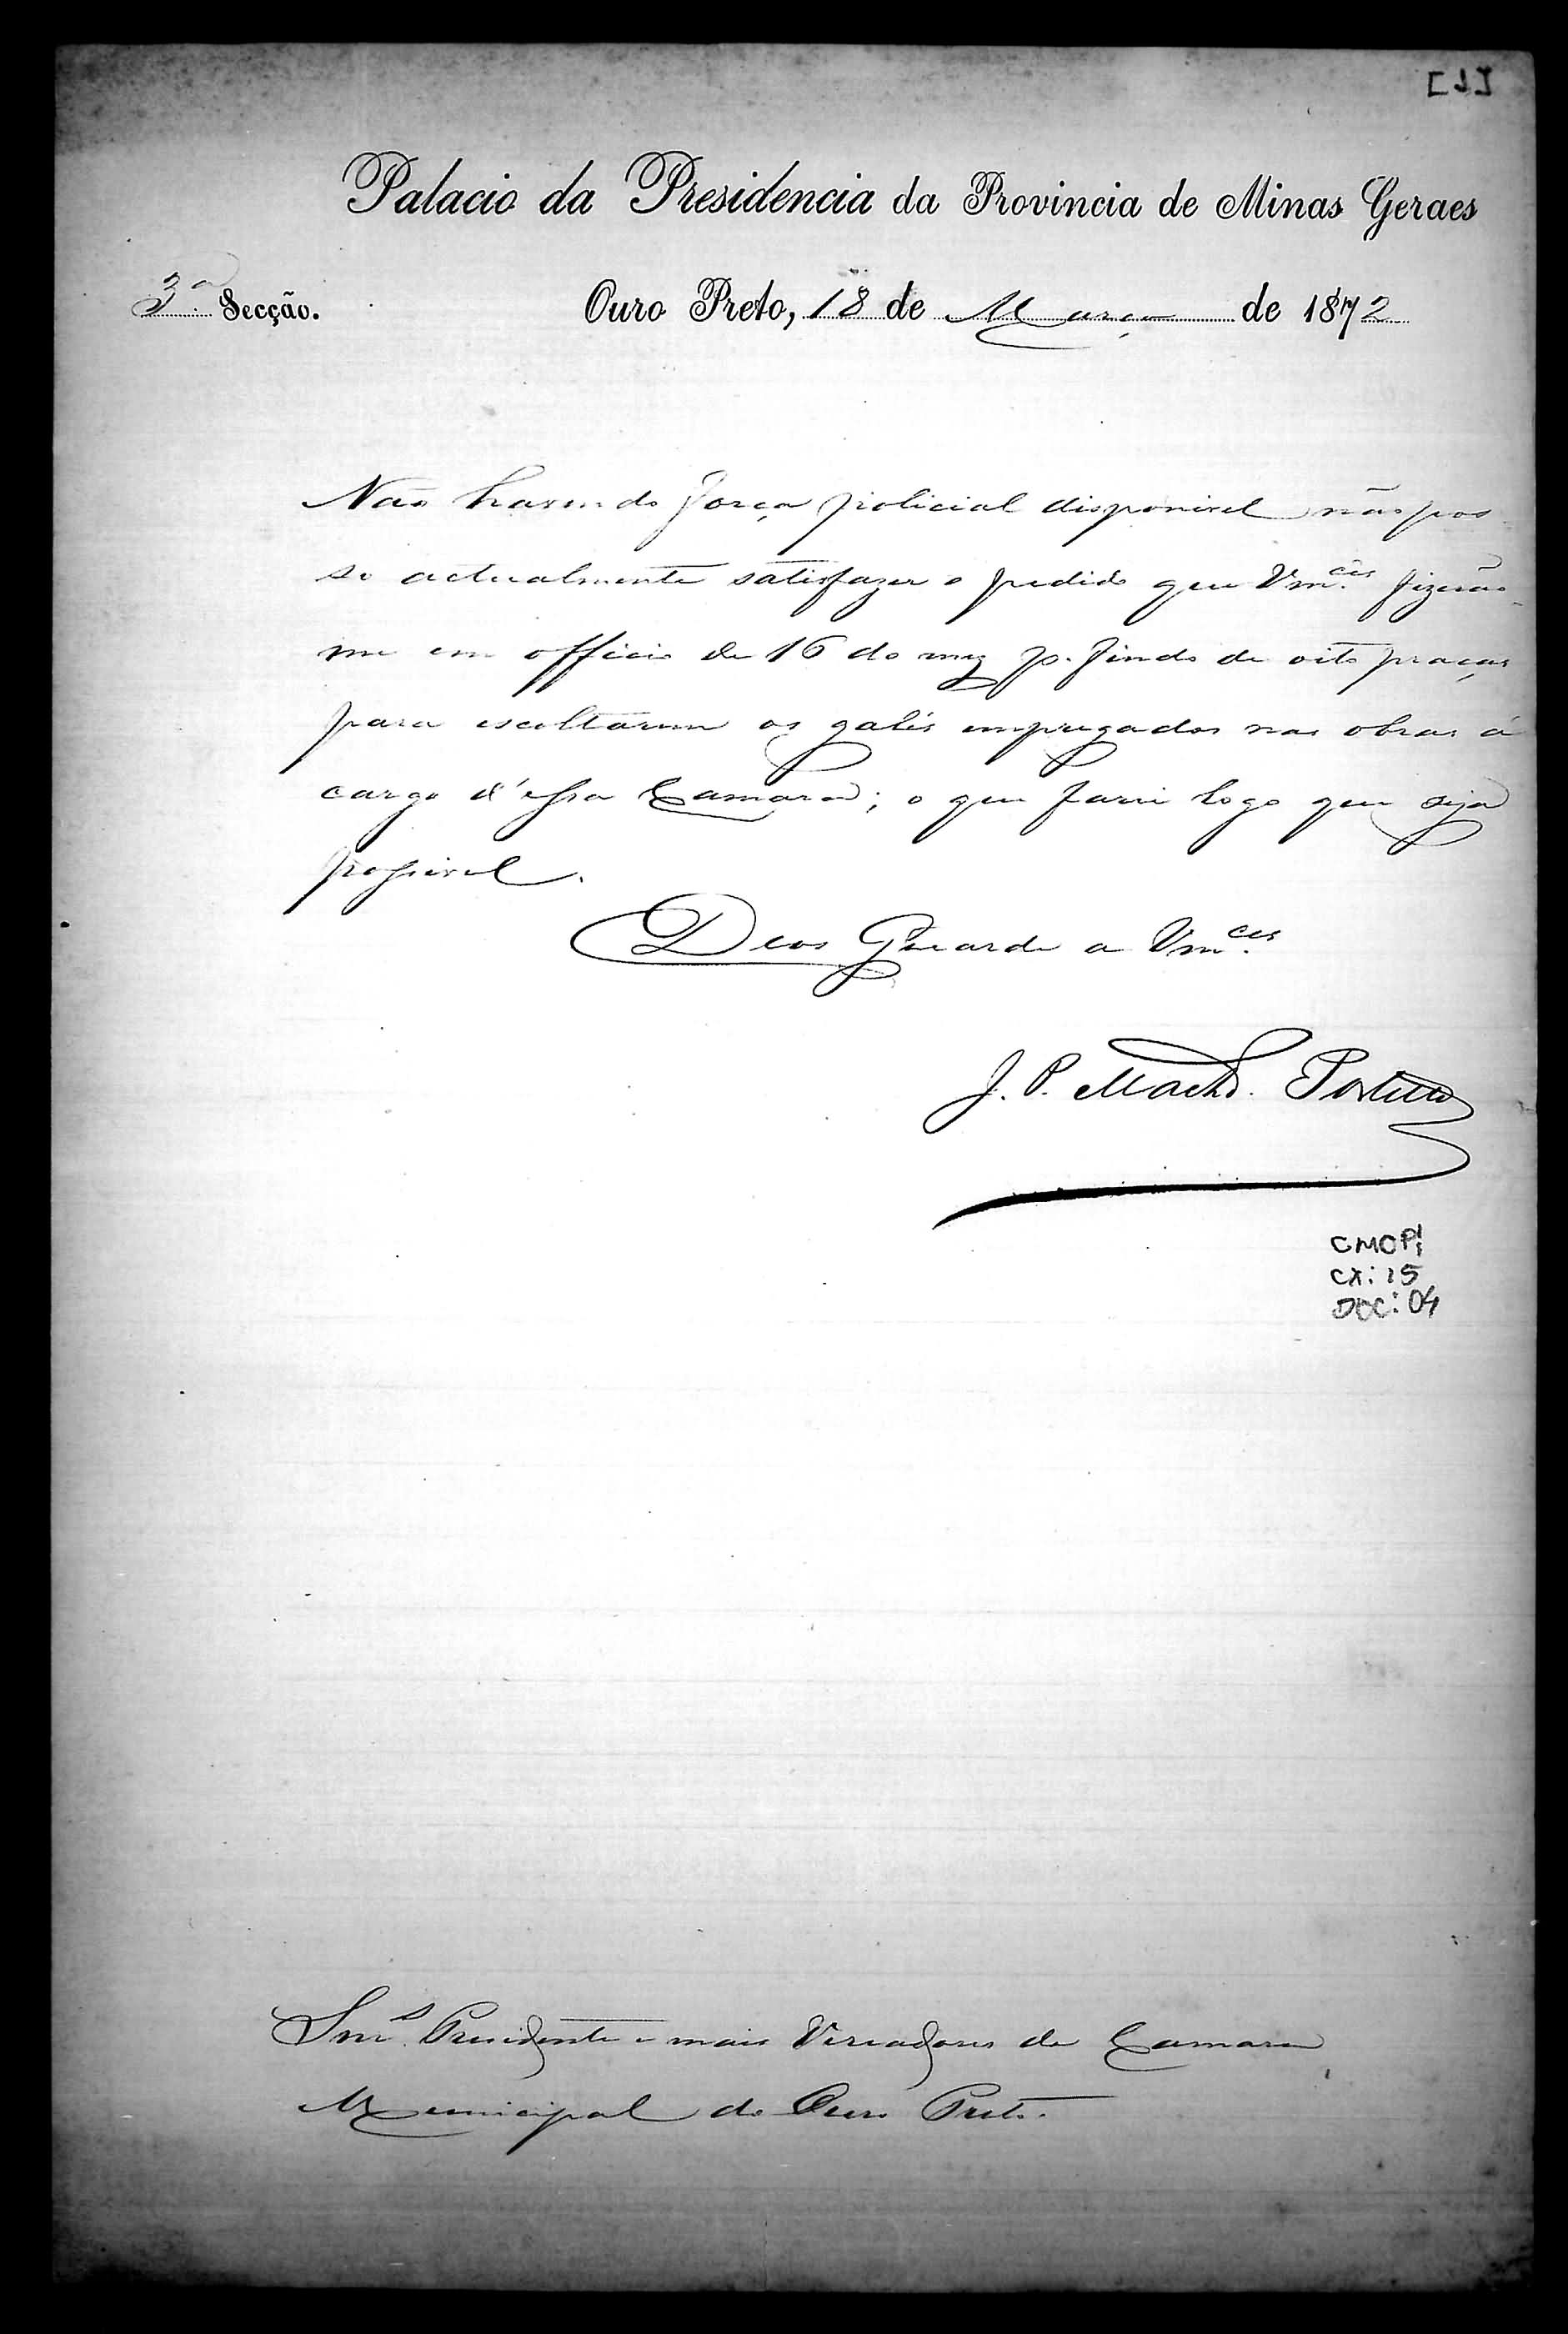 [1]
Palacio da Presidencia da Provincia de Minas Geraes
3ª Secção. Ouro Preto, 18 de Março de 1872
Não havendo força policial disponivel não pos
so actualmente satisfazer o pedido que Vm.cês fizerão-
me em officio de 16 do mez p. findo de oito praças
para escoltarem os galés empregados nas obras á
cargo d'essa Camara; o que farei logo que seja
possivel.
Deos Guarde a Vm.ces
J. P. Machdo. Portella
CMOP:
CX: 15
DOC: 04
Snrs. Presidente e mais Vereadores da Camara
Municipal do Ouro Preto.